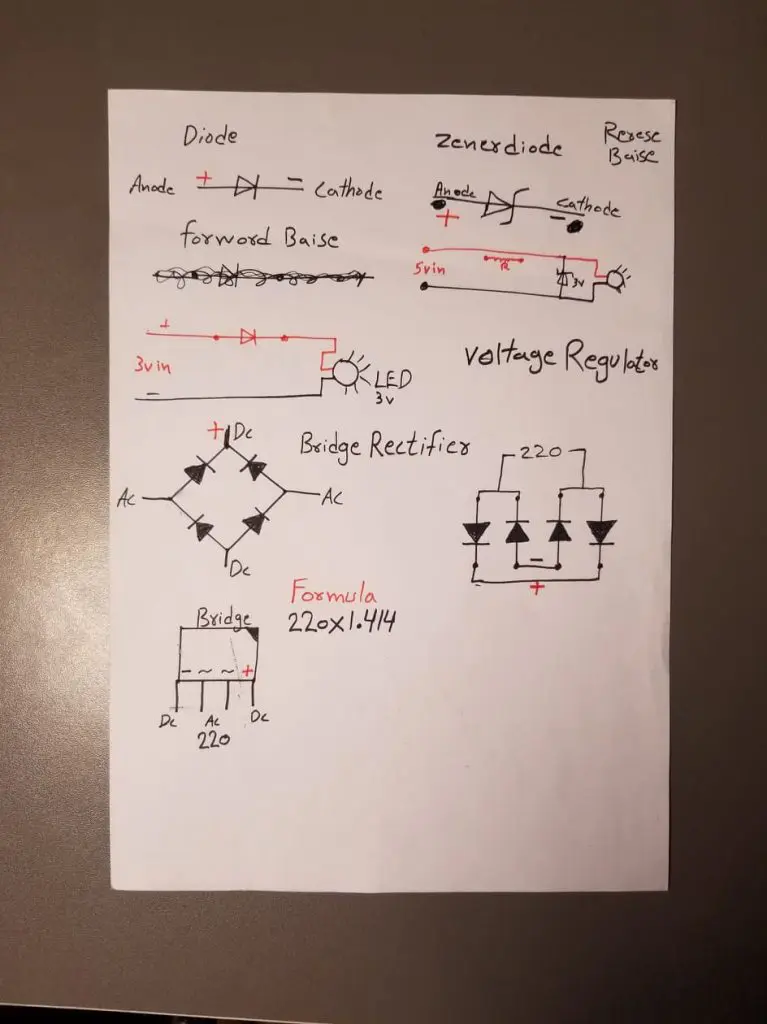 Diode
Anode + − Cathode
forword Baise
+
3vin
−
LED
3v
Zenerdiode
Rerese
Baise
Anode
+
Cathode
−
5vin
R
3v
Voltage Regulator
Bridge Rectifier
+ Dc
Ac
Ac
Dc
220
−
− +
Formula
220x1.414
Bridge
− ~ ~ +
Dc Ac Dc
220